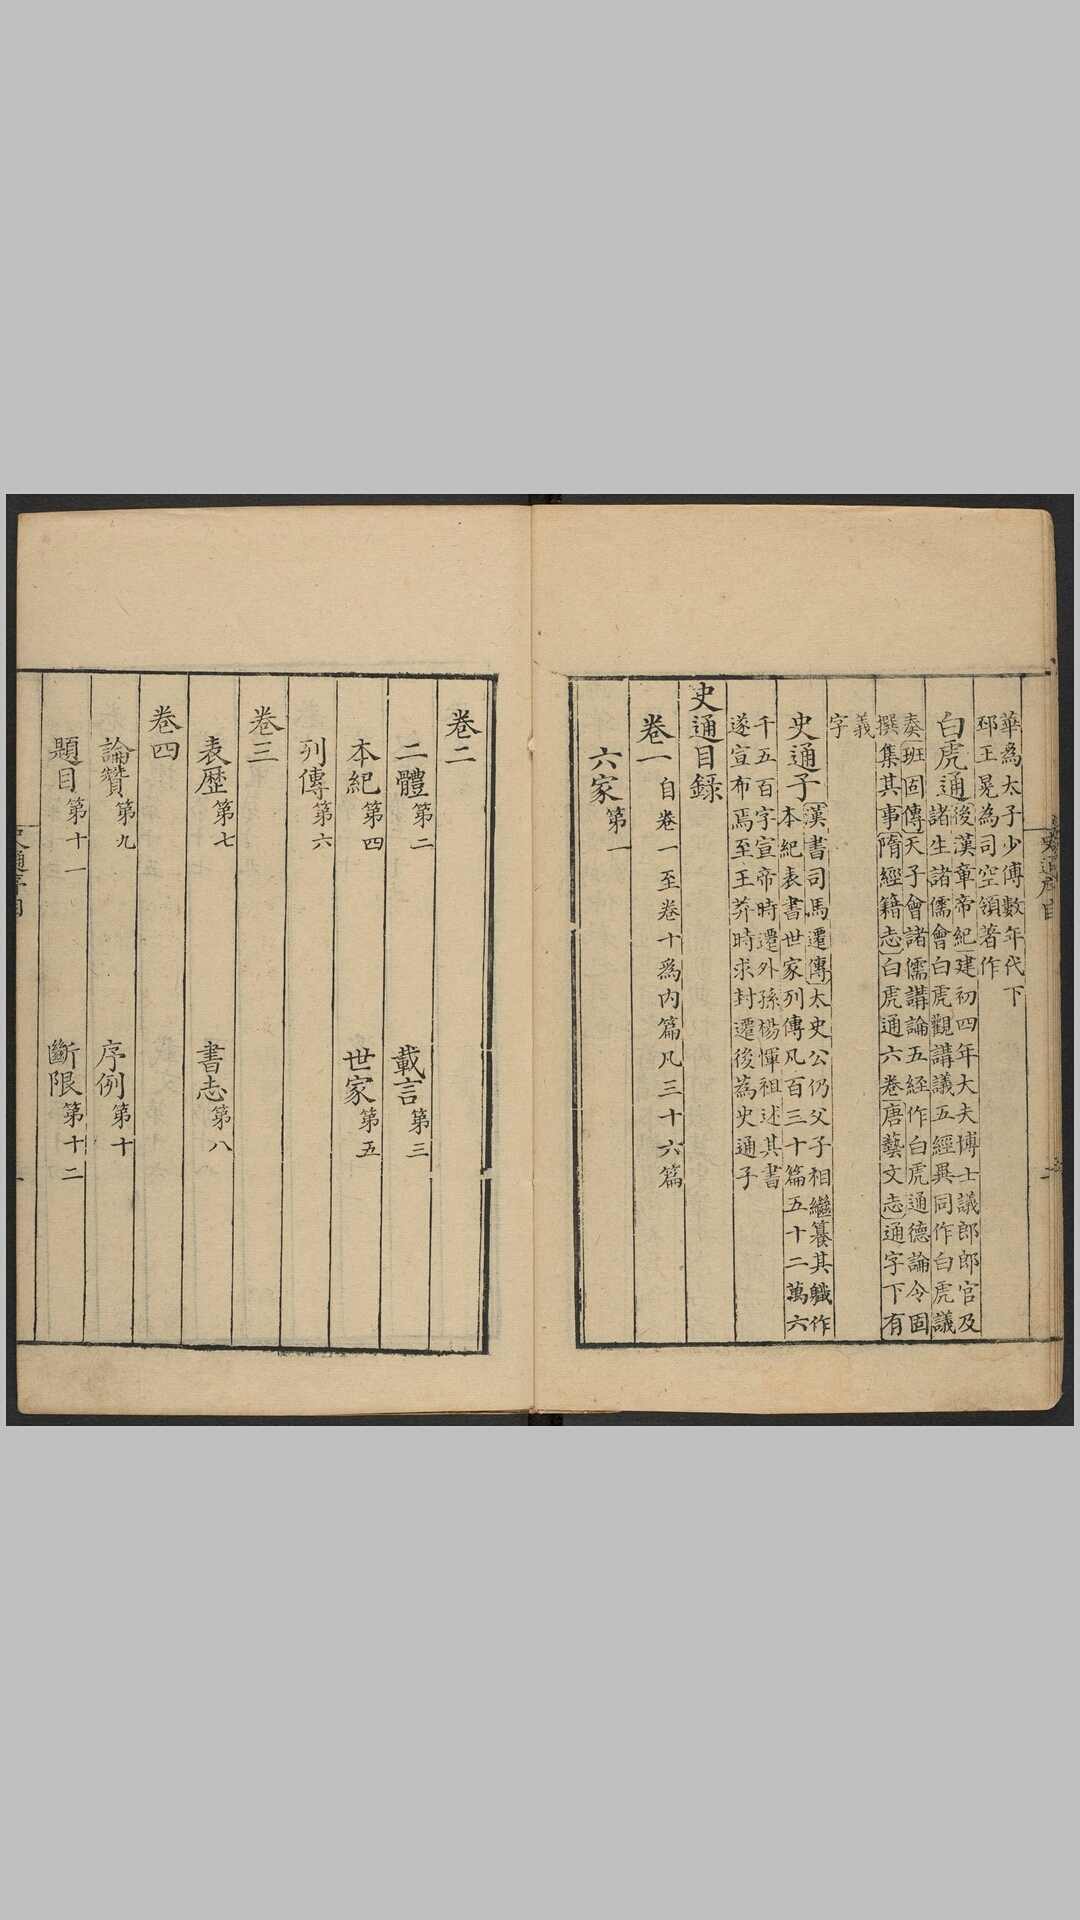 華為太子少傅數年代下
邳王晃為司空領著作
白虎通
後漢章帝紀建初四年大夫博士議郎郎官及
諸生諸儒會白虎觀講議五經異同作白虎議
奏班固傳天子會諸儒講論五経作白虎通德論令固
撰集其事隋經籍志白虎通六卷唐藝文志通字下有
義
字
史通子
漢書司馬遷傳太史公仍父子相繼纂其軄作
本紀表書世家列傳凡百三十篇五十二萬六
千五百字宣帝時遷外孫楊惲祖述其書
遂宣布焉至王莽時求封遷後為史通子
史通目録
卷一 自卷一至卷十爲内篇凡三十六篇
六家第一
卷二
二體第二 載言第三
本紀第四 世家第五
列傳第六
卷三
表歷第七 書志第八
卷四
論贊第九 序例第十
題目第十一 斷限第十二